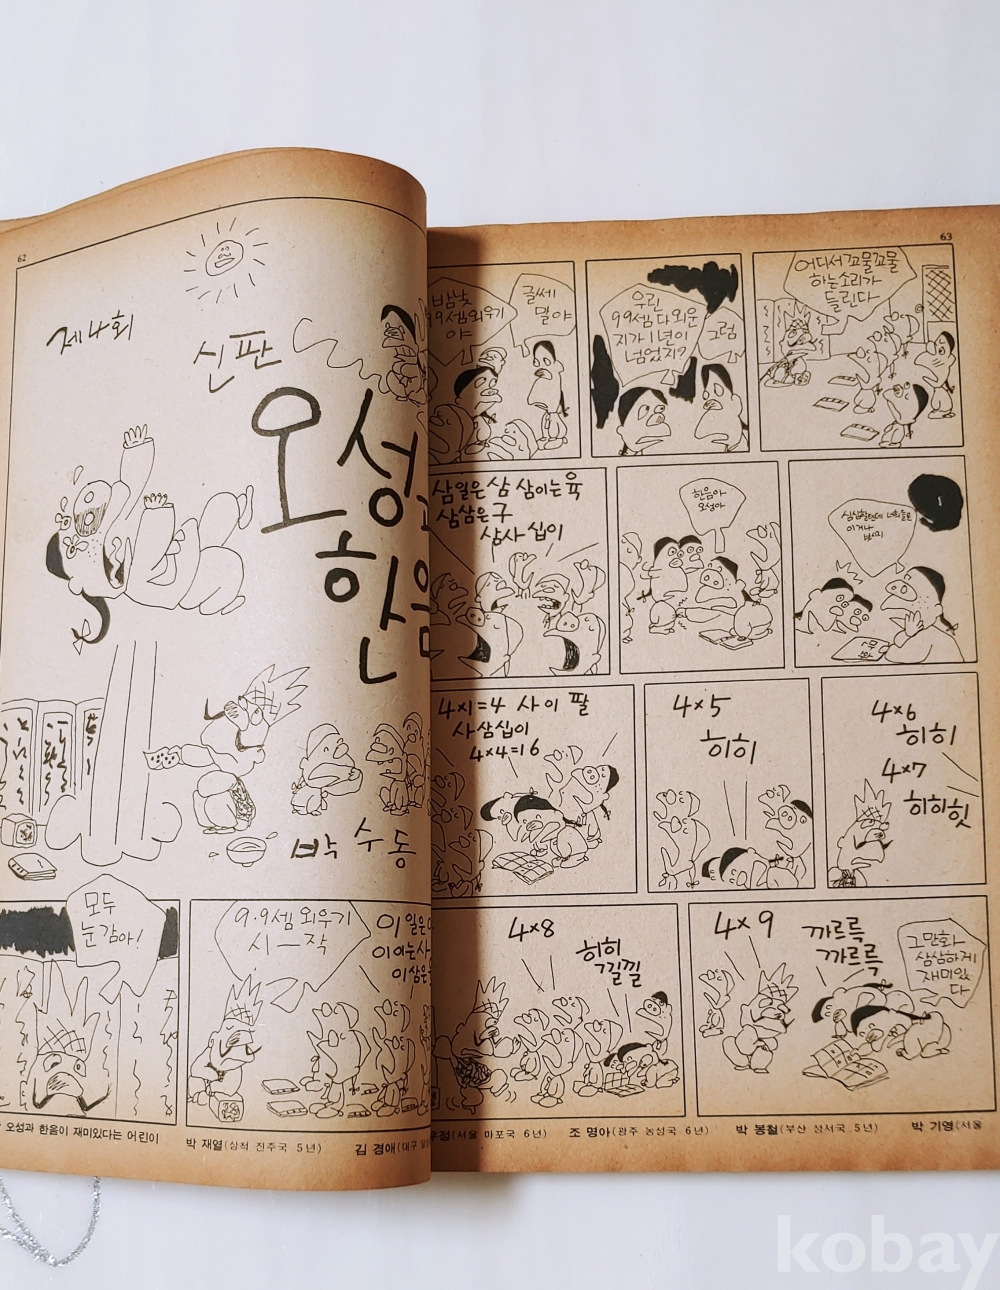 62
제4회
신판
오성과
한음
박수동
모두
눈감아!
9.9셈 외우기
시—작
이 일은
이이는 사
이삼은
오성과 한음이 재미있다는 어린이
박 재열(삼척 진주국 5년)
김 경애(대구
63
밤낮
99셈 외우기
야
글쎄
말야
우린
99셈 다 외운
지가 1년이
넘었지?
그럼
어디서 꼬물꼬물
하는 소리가
들린다
삼일은 삼 삼이는 육
삼삼은 구
삼사 십이
한음아
오성아
심심할텐데 너희들도
이거나
보시지
4×1=4 사이 팔
사삼 십이
4×4=16
4×5
히히
4×6
히히
4×7
히히힛
4×8
히히
낄낄
4×9
까르륵
까르륵
그 만화
삼삼하게
재미있
다
정(서울 마포국 6년)
조 명아(광주 농성국 6년)
박 봉철(부산 성서국 5년)
박 기영(서울
kobay